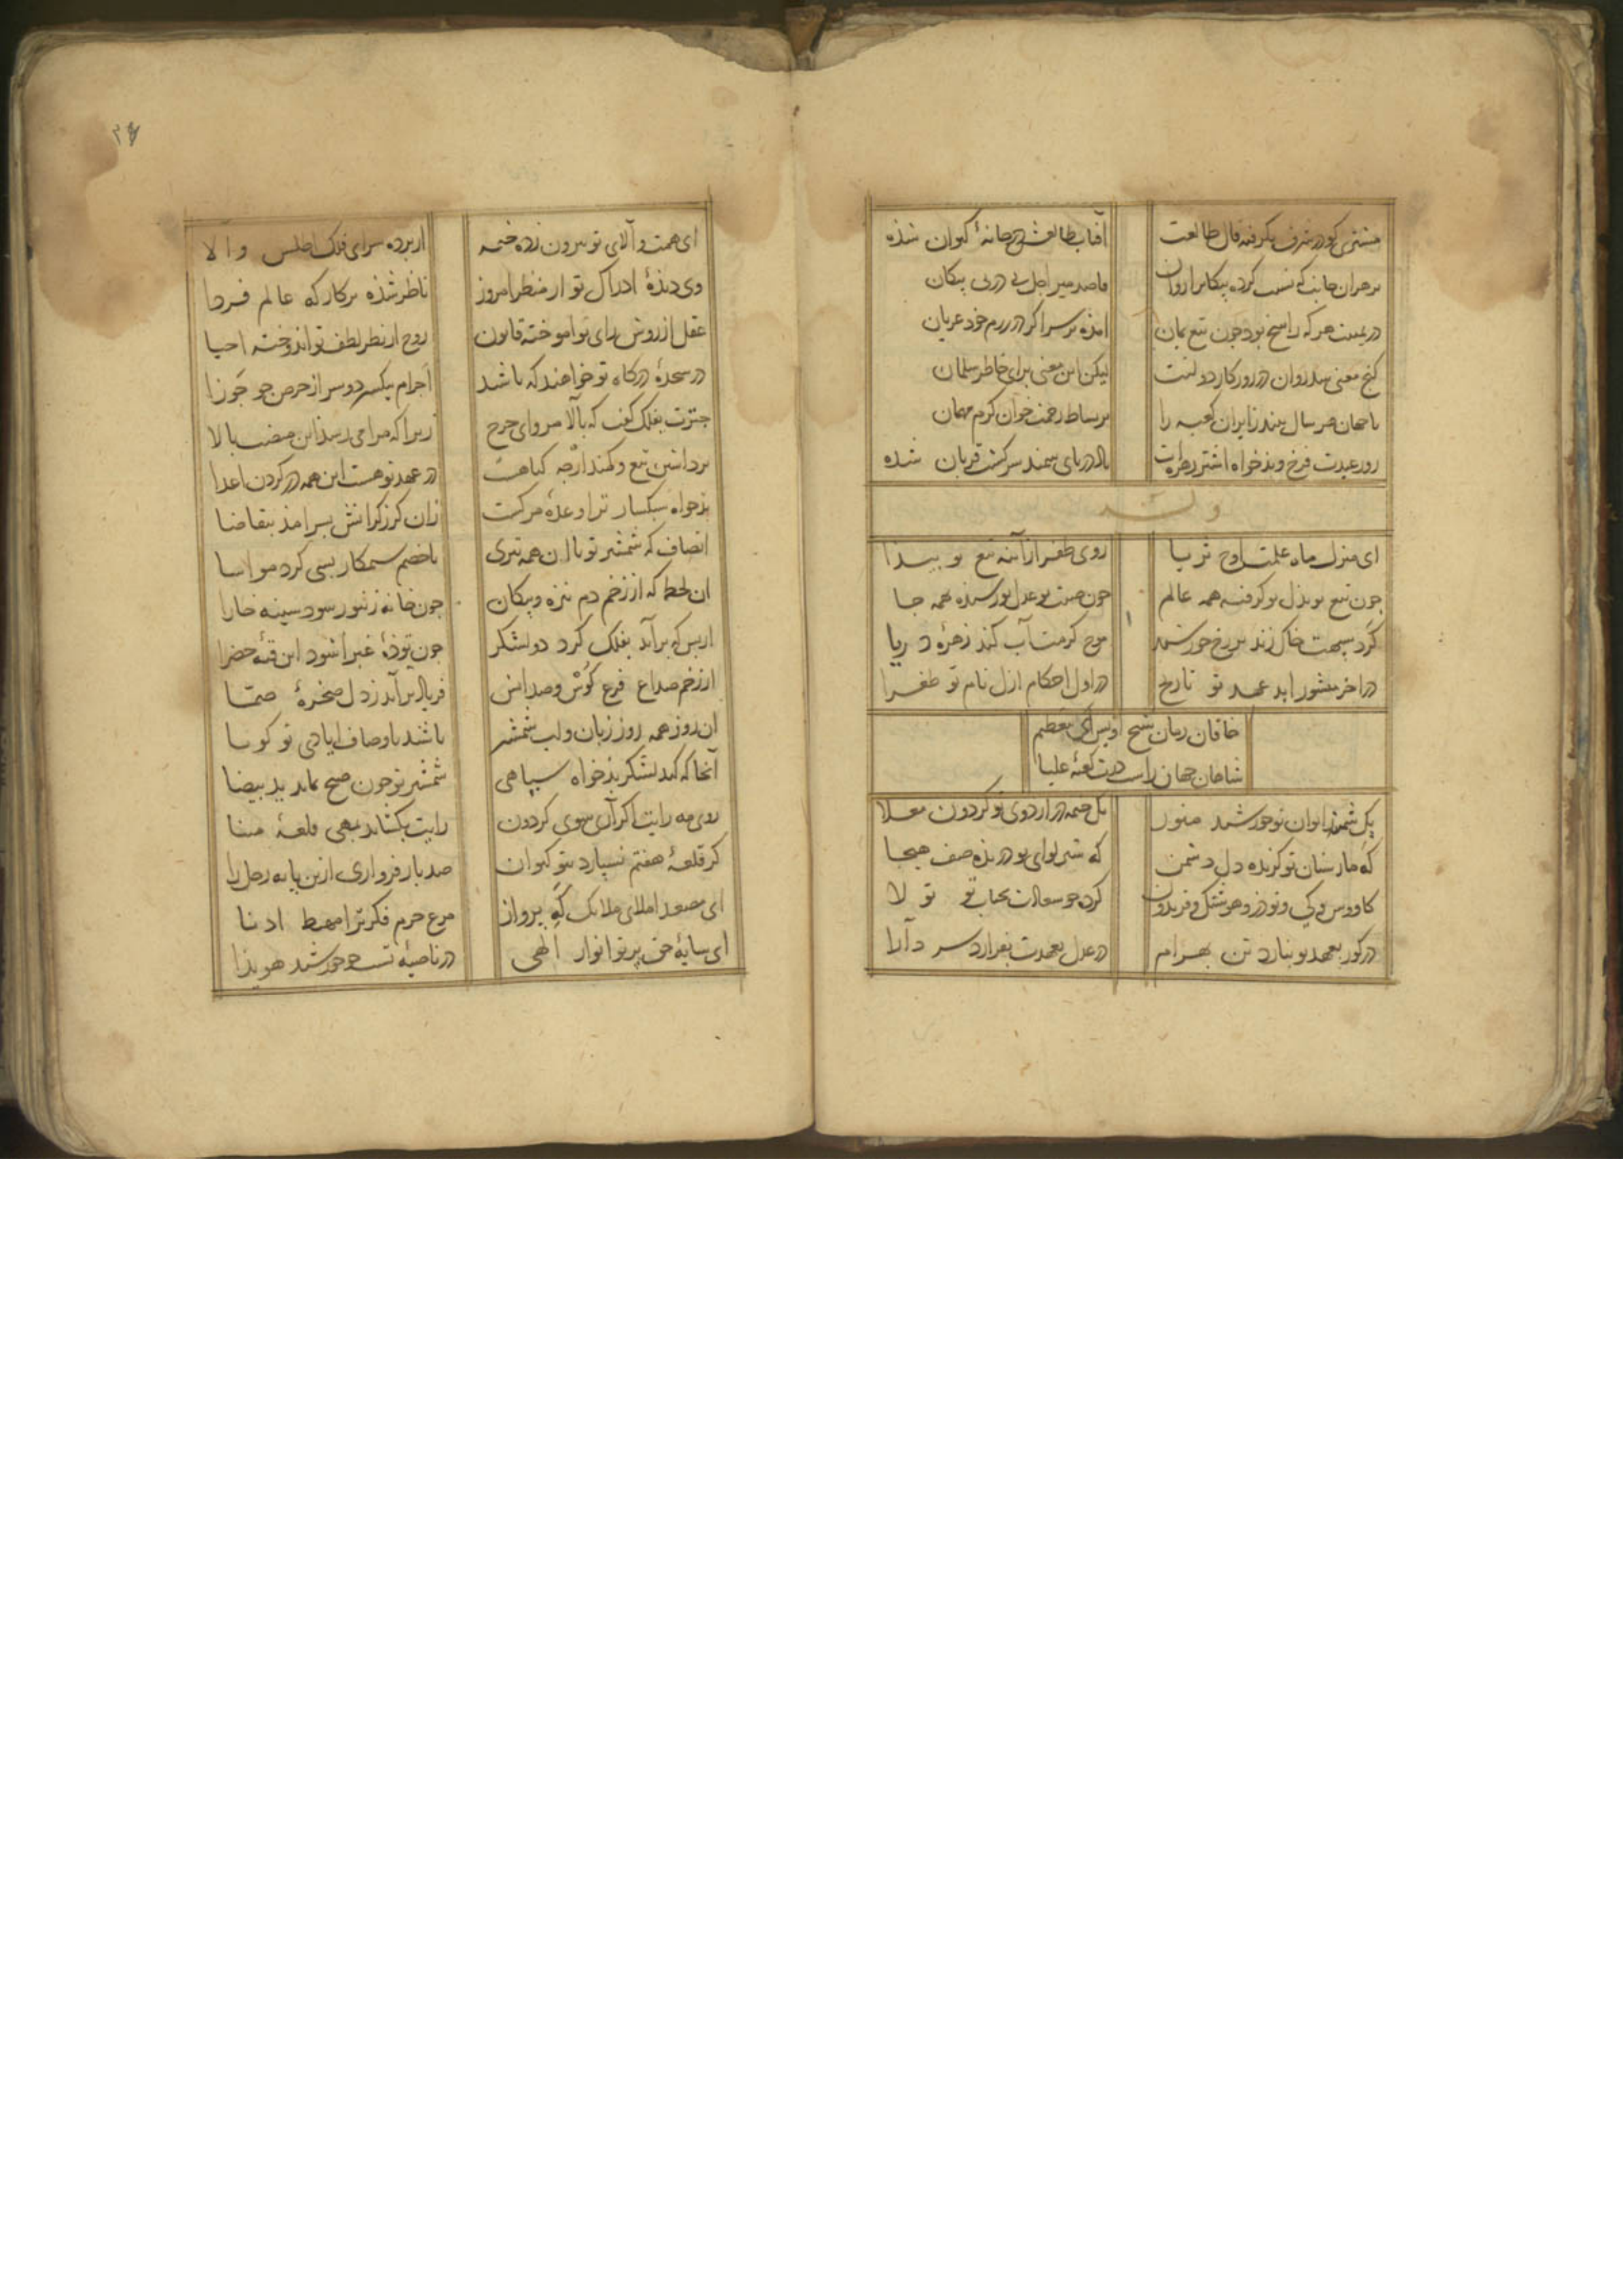 مشتری کو در شرف بگرفته فال طالعت
آفتاب طالعش در خانهٔ کیوان شده
بر هر ان جانب که نسبت کرده پیکانرا روان
قاصد میر اجل بی در پی پیکان
در یمینت هر که راسخ بود چون تیغ یمان
امده بر سر اکر در رزم خود عریان
کنج معنی روان در روزکار دولتت
لیکن این معنی برای خاطر سلمان
تا جهان هر سال بیند زایران کعبه را
بر بساط رحمت خوان کرم مهمان
روز عیدت فرخ و بدخواه اشتر
باد در پای سمند سرکشت قربان شده
وله
ای منزل ماه علمت اوج ثریا
روی ظفر از آینه تیغ تو پیدا
چون تیغ تو بذل تو کرفته همه عالم
چون صیت تو عدل تو رسیده همه جا
کرد سپهت خاک زند بر رخ خورشید
موج کرمت آب کند زهرهٔ دریا
در اخر منشور ابد عهد تو تاریخ
در اول احکام ازل نام تو طغرا
خاقان زمان شیخ اویس آن که معظم
شاهان جهان راست درت کعبهٔ علیا
یک شمسه ز ایوان تو خورشید منور
یک خیمه در اردوی تو کردون معلا
که مار سنان تو کزیده دل دشمن
که شیر لوای تو دریده صف هیجا
کاووس و کی و نوذر و هوشنک و فریدون
کرده جو سعادت بجناب تو تولا
در کور بعهد تو بنازد تن بهرام
در عدل بعهدت بفرازد سر دارا
ای همت والای تو بیرون زده خیمه
از پرده سرای فلک اطلس والا
وی دیدهٔ ادراک تو از منظر امروز
ناظر شده بر کار که عالم فردا
عقل از روش رای تو اموخته قانون
روح از نظر لطف تو اندوخته احیا
در سجدهٔ درکاه تو خواهند که باشد
اجرام بیکسر دو سر از حرص جو جوزا
چترت بفلک کفت که بالا مرو ای چرخ
زیرا که مرا می رسد این منصب بالا
برداشتن تیغ و کمند ارچه کناهست
در عهد تو هست این همه در کردن اعدا
بدخواه سبکسار ترا وعدهٔ مرکست
زان کرز کرانش بسر امد بتقاضا
انصاف که شمشیر تو با ان همه تیزی
با خصم ستمکار بسی کرد مواسا
ان لحظه که از زخم دم نیزه و پیکان
چون خانه زنبور شود سینه خارا
از بس که براید بفلک کرد دو لشکر
چون تودهٔ غبرا شود این قبهٔ خضرا
از زخم صداع فزع کوس و صدایش
فریاد برآید ز دل صخرهٔ صما
ان روز همه روز زبان و لب شمشیر
باشد باوصاف ایادی تو کویا
آنجا که کند لشکر بدخواه سیاهی
شمشیر تو چون صبح نماید ید بیضا
روی مه رایت اکر آری سوی کردون
رایت بکشاید بمهی قلعهٔ مینا
کر قلعهٔ هفتم نسپارد بتو کیوان
صد بار فرود آری ازین پایه زحل را
ای مصعد املای ملایک که پرواز
مرغ حرم فکر ترا مهبط ادنا
ای سایهٔ حق پرتو انوار الهی
در ناصیهٔ تست چو خورشید هویدا